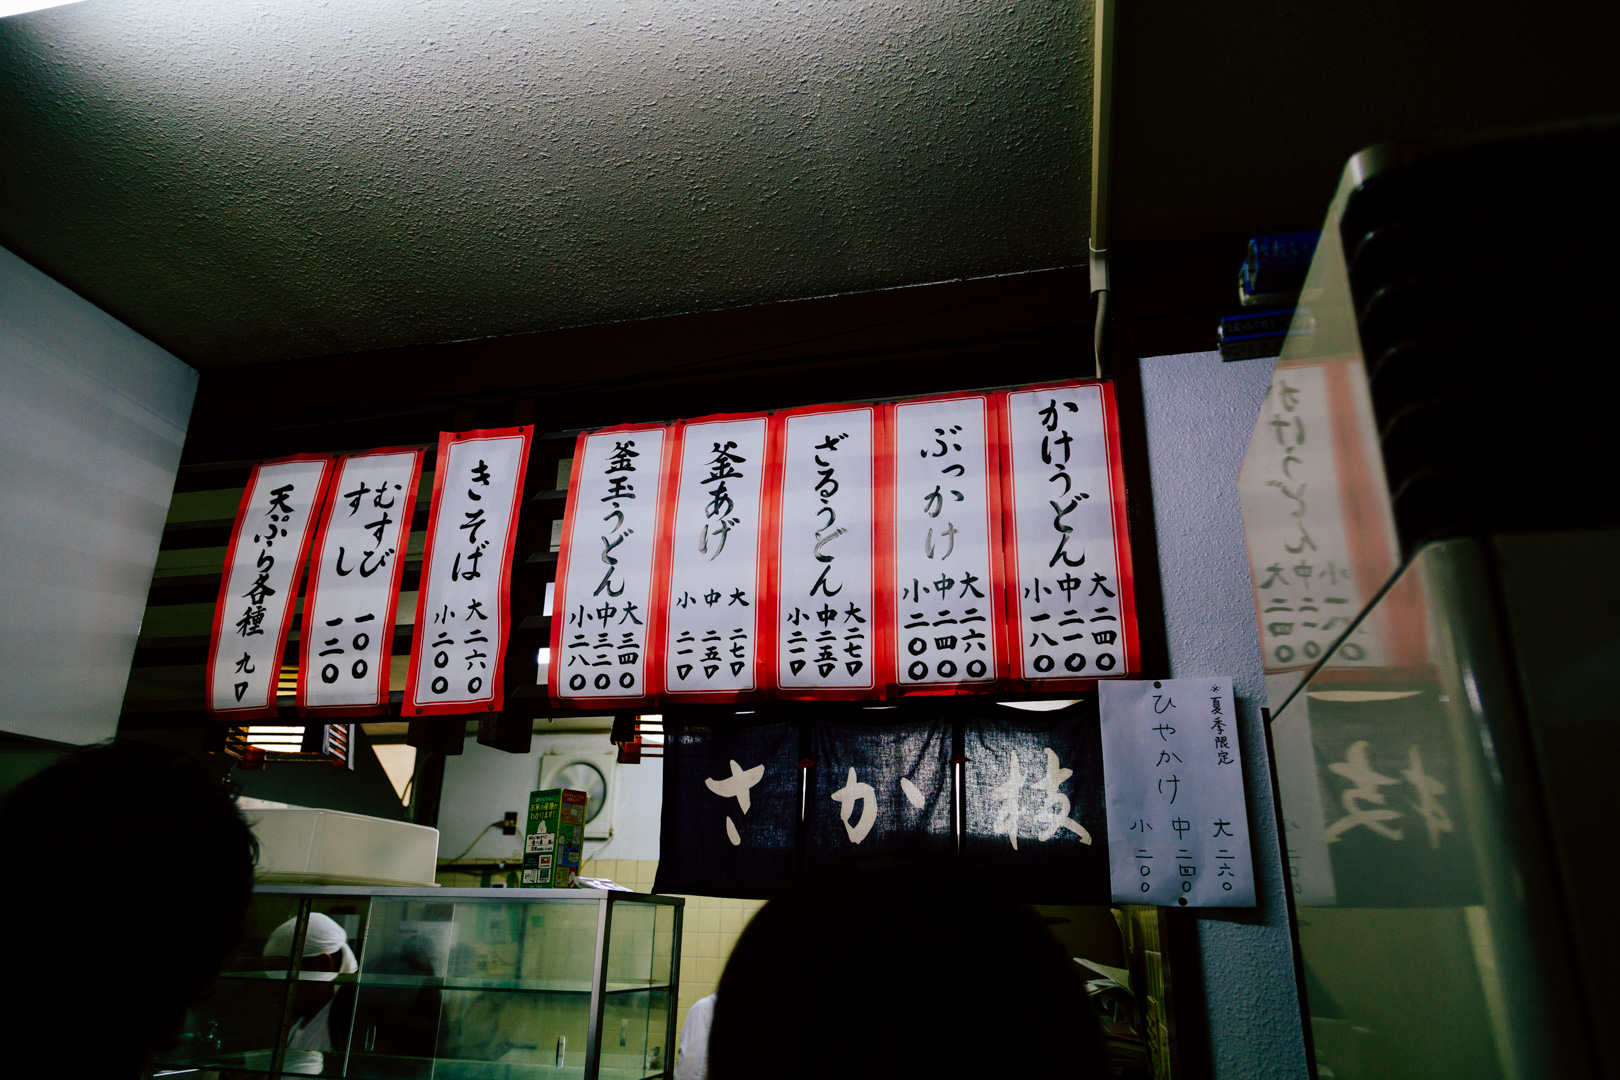 かけうどん
大二四〇
中二一〇
小一八〇
ぶっかけ
大二六〇
中二四〇
小二〇〇
ざるうどん
大二七〇
中二五〇
小二一〇
釜あげ
大二七〇
中二五〇
小二一〇
釜玉うどん
大三四〇
中三二〇
小二八〇
きそば
大二六〇
小二〇〇
むすび 一〇〇
すし 一二〇
天ぷら各種 九〇
さか枝
※夏季限定
ひやかけ
大二六〇
中二四〇
小二〇〇